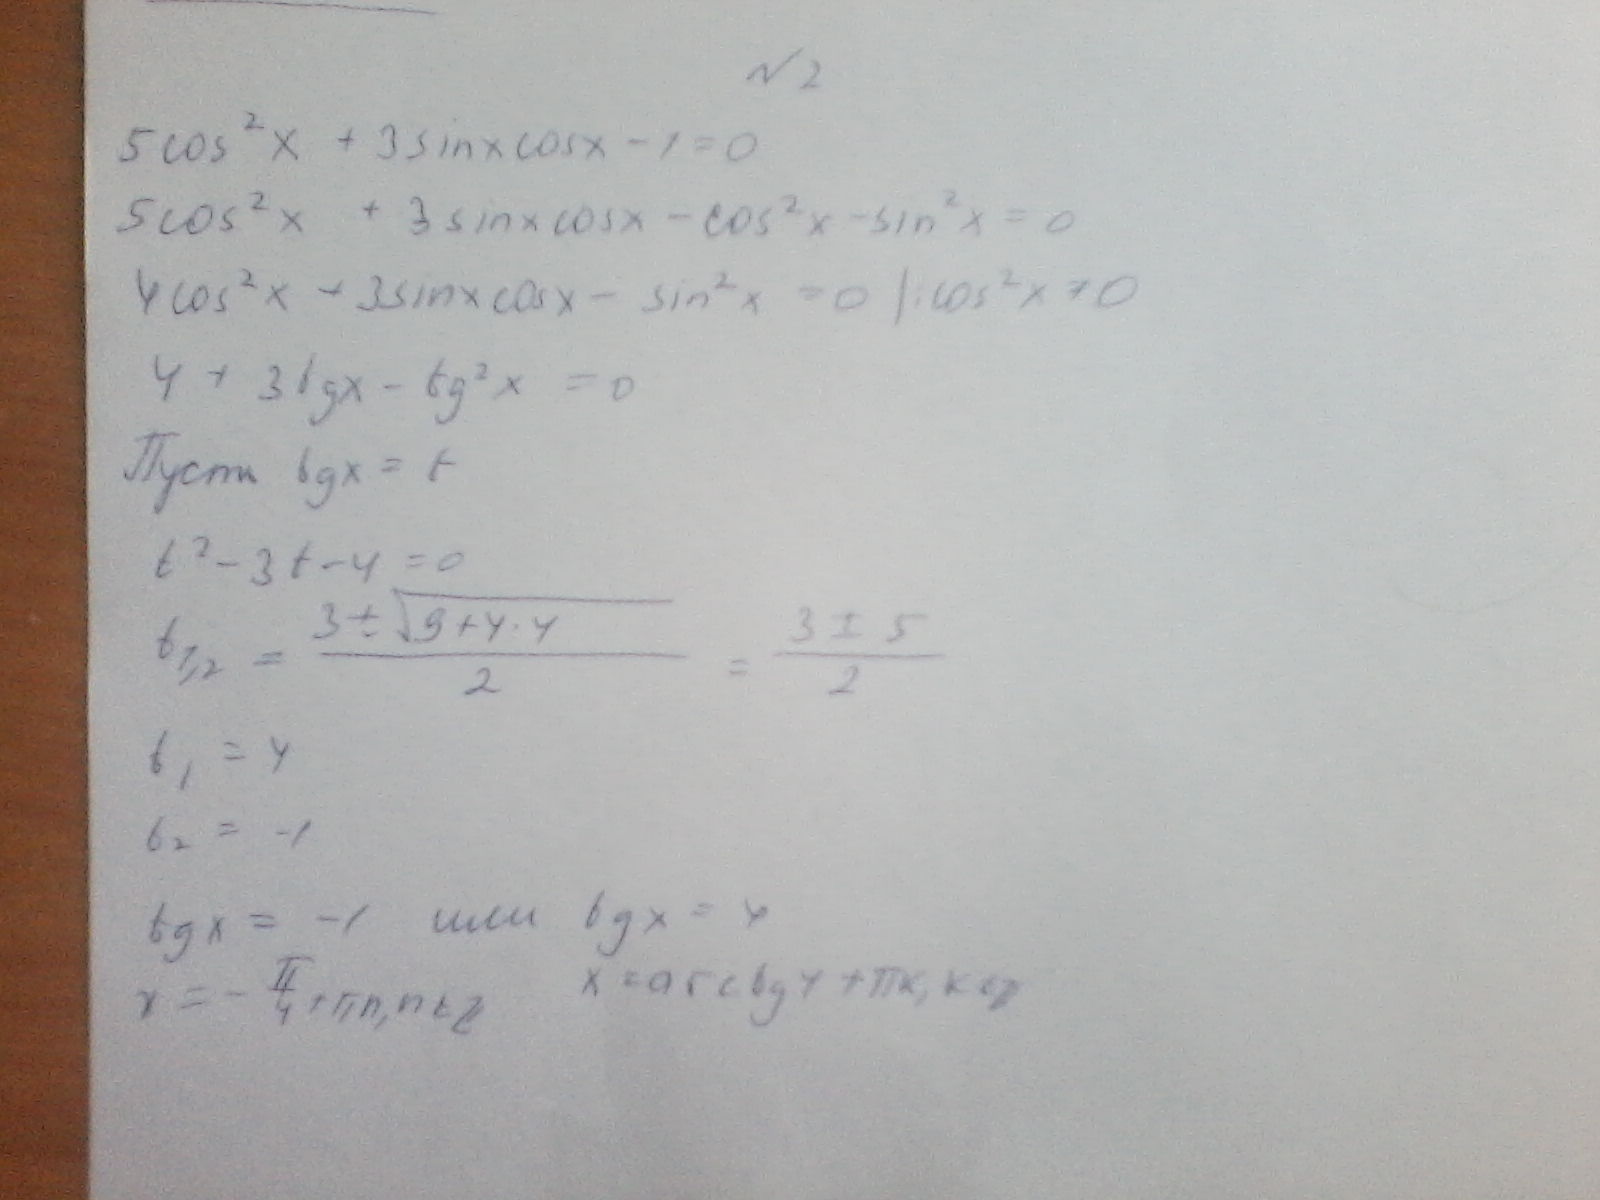 №2
5cos²x + 3sinxcosx - 1 = 0
5cos²x + 3sinxcosx - cos²x - sin²x = 0
4cos²x + 3sinxcosx - sin²x = 0 |:cos²x ≠ 0
4 + 3tgx - tg²x = 0
Пусть tgx = t
t² - 3t - 4 = 0
t₁,₂ = (3 ± √(9+4·4))/2 = (3 ± 5)/2
t₁ = 4
t₂ = -1
tgx = -1 или tgx = 4
x = -π/4 + πn, n∈Z x = arctg4 + πk, k∈Z